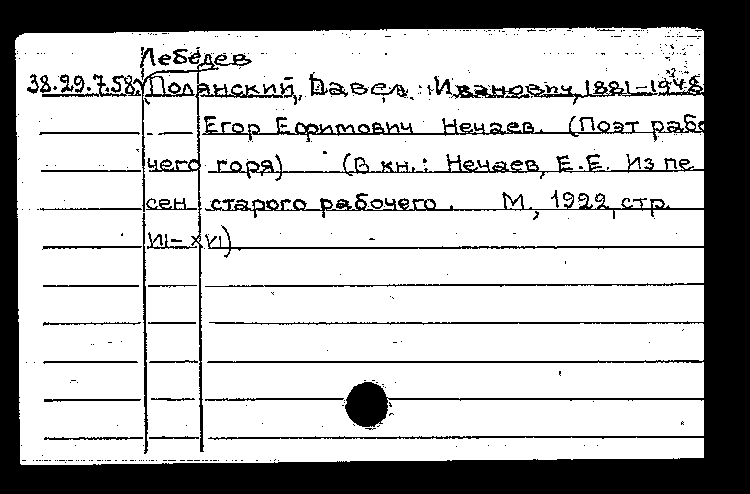 Лебедев
38.29.7.58. Полянский, Павел Иванович, 1881–1948
Егор Ефимович Нечаев. (Поэт рабо
чего горя) (В кн.: Нечаев, Е.Е. Из пе
сен старого рабочего. М., 1922, стр.
VII–XVI).